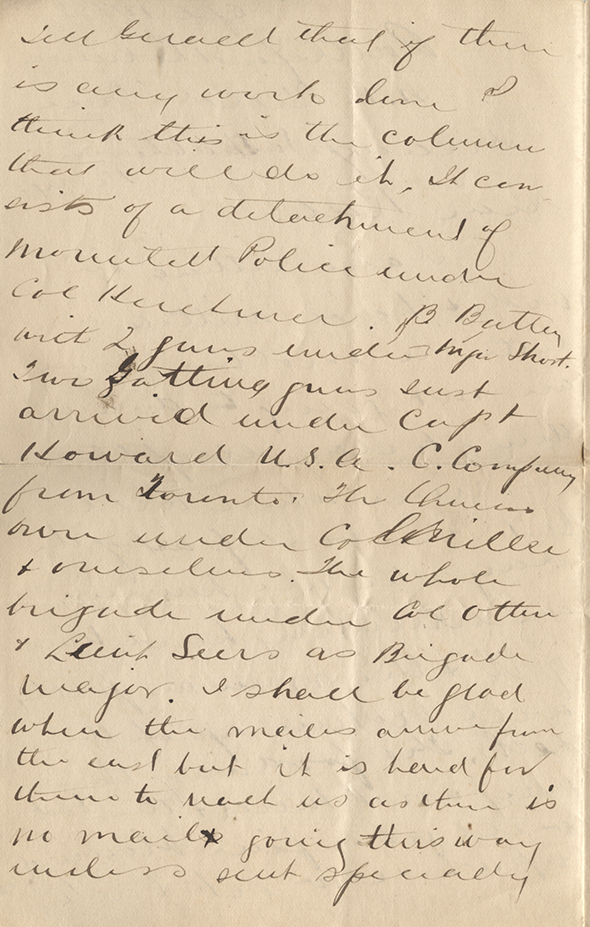 Tell Gerald that if there
is any work done I
think this is the column
that will do it. It con
sists of a detachment of
Mounted Police under
Col Herchmer. B Battery
with 2 guns under Major Short.
Two Gatling guns just
arrived under Capt
Howard U.S.A. C. Company
from Toronto. The Queens
own under Col Miller
& ourselves. The whole
brigade under Col Otter
& Lieut Sears as Brigade
Major. I shall be glad
when the mails arrive from
the east but it is hard for
them to reach us as there is
no mails going this way
unless sent specially